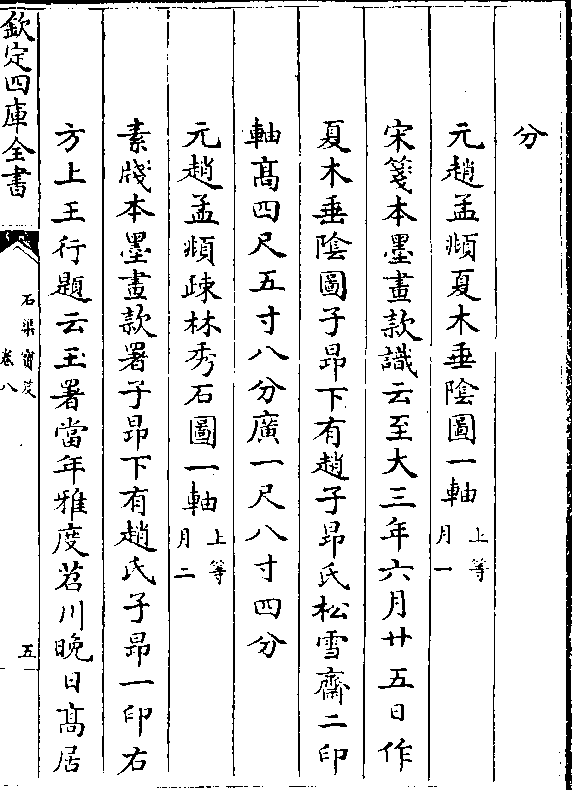 分
元趙孟頫夏木垂隂圖一軸上等月一
宋箋本墨畫款識云至大三年六月廿五日作
夏木垂隂圖子昂下有趙子昂氏松雪齋二印
軸髙四尺五寸八分廣一尺八寸四分
元趙孟頫疎林秀石圖一軸上等月二
素牋本墨畫款署子昂下有趙氏子昂一印右
方上王行題云玉署當年雅度苕川晚日髙居
欽定四庫全書
石渠寳笈
卷八
五